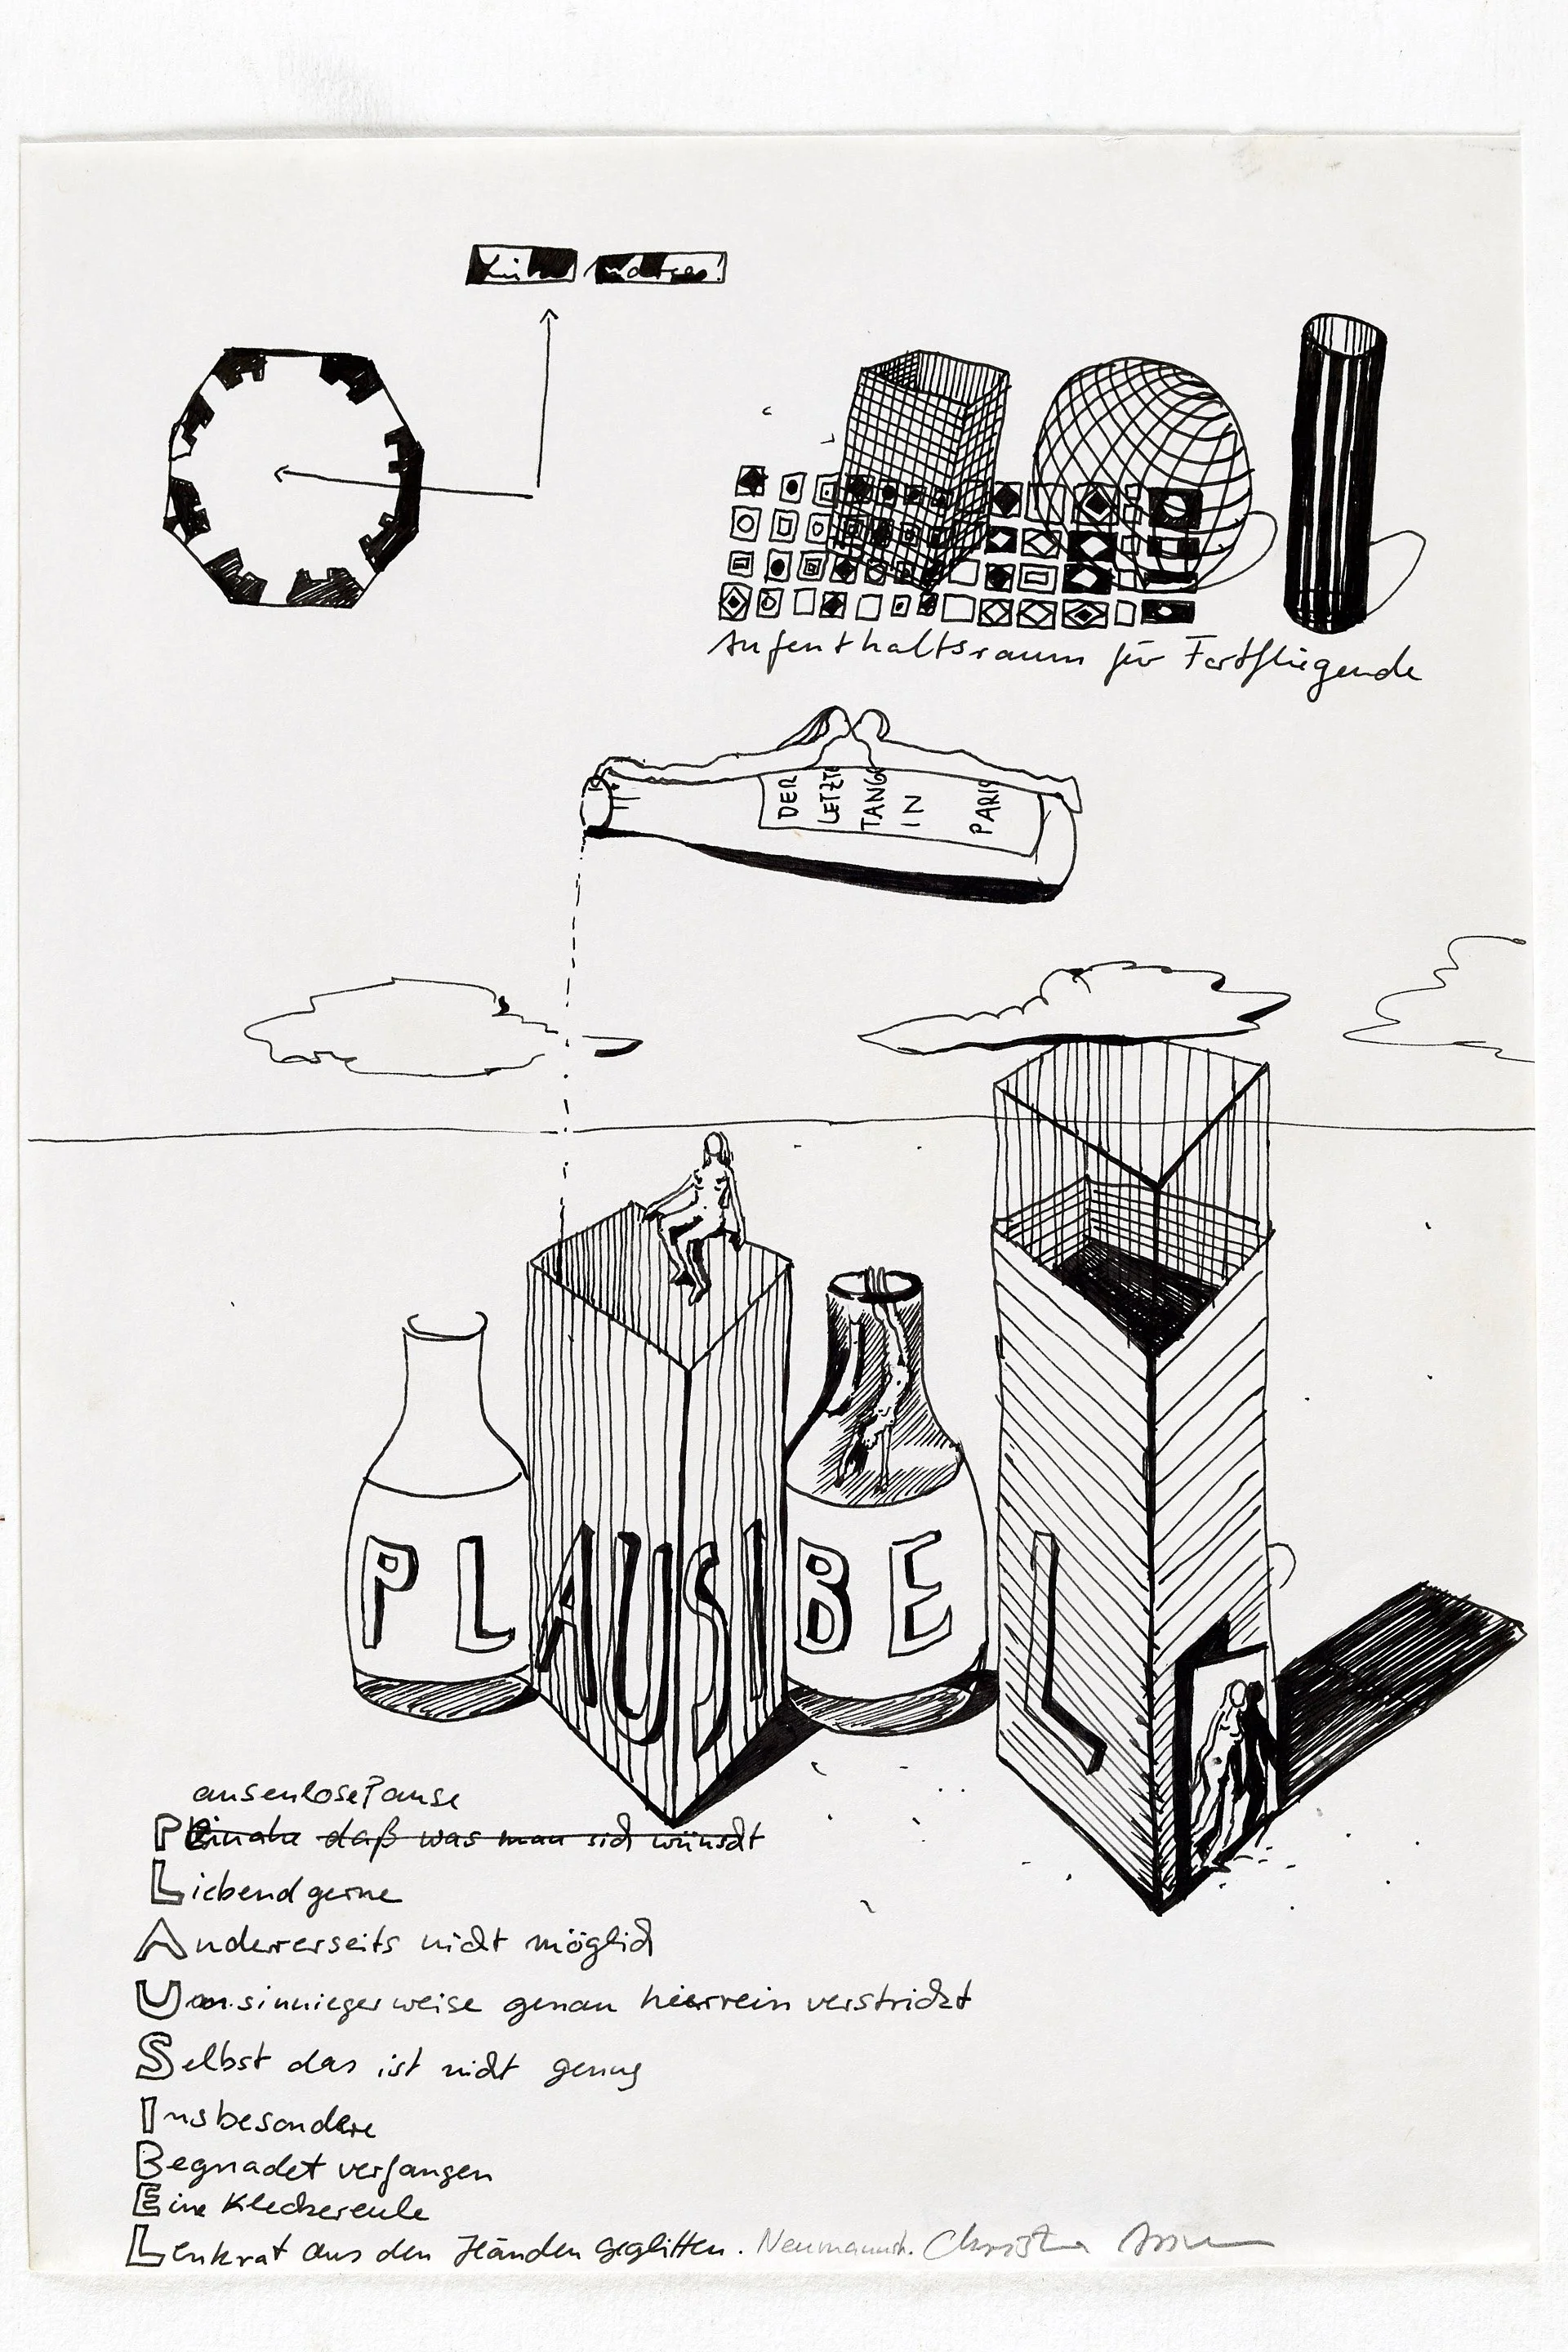 Aufenthaltsraum für Fortfliegende
DER
LETZTE
TANGO
IN
PARIS
PLAUSIBEL
ausenlosePause
P Beinahe daß was man sich wünscht
Liebend gerne
Andererseits nicht möglich
Unsinnigerweise genau hierrein verstrickt
Selbst das ist nicht genug
Insbesondere
Begnadet verfangen
Eine Kleckereule
Lenkrat aus den Händen geglitten.